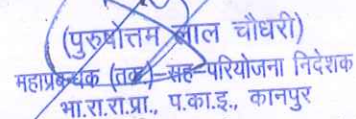 (पुरुषोत्तम लाल चौधरी)
महाप्रबन्धक (तक)-सह-परियोजना निदेशक
भा.रा.रा.प्रा., प.का.इ., कानपुर